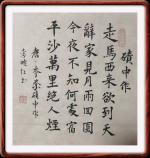 磧中作
走馬西來欲到天
辭家見月兩回圓
今夜不知何處宿
平沙萬里絕人煙
唐岑參磧中作